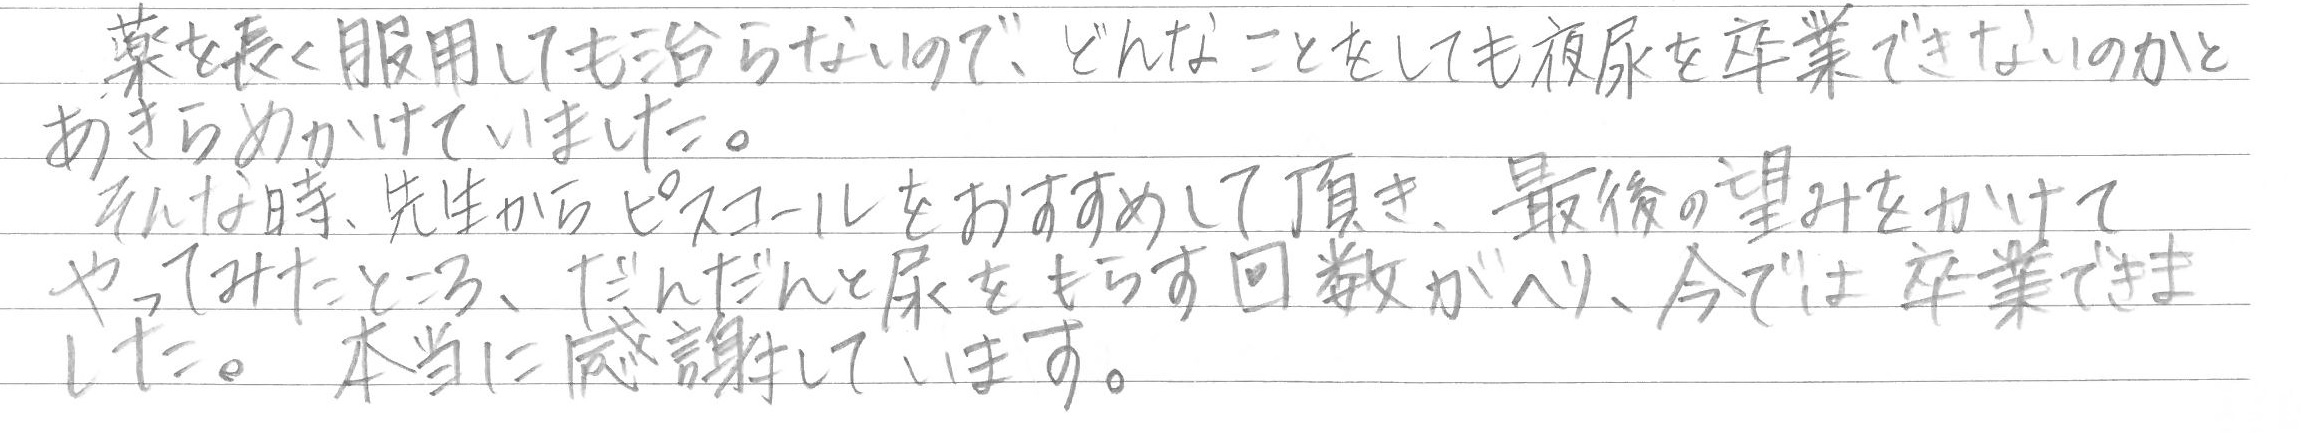 薬を長く服用しても治らないので、どんなことをしても夜尿を卒業できないのかと
あきらめかけていました。
そんな時、先生からピスコールをおすすめして頂き、最後の望みをかけて
やってみたところ、だんだんと尿をもらす回数がへり、今では卒業できま
した。本当に感謝しています。